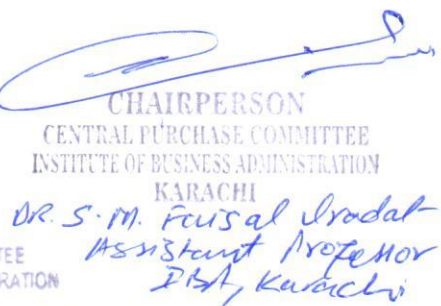 CHAIRPERSON
CENTRAL PURCHASE COMMITTEE
INSTITUTE OF BUSINESS ADMINISTRATION
KARACHI
DR. S. M. Faisal Iradat
TEE Assistant Professor
RATION IBA, Karachi